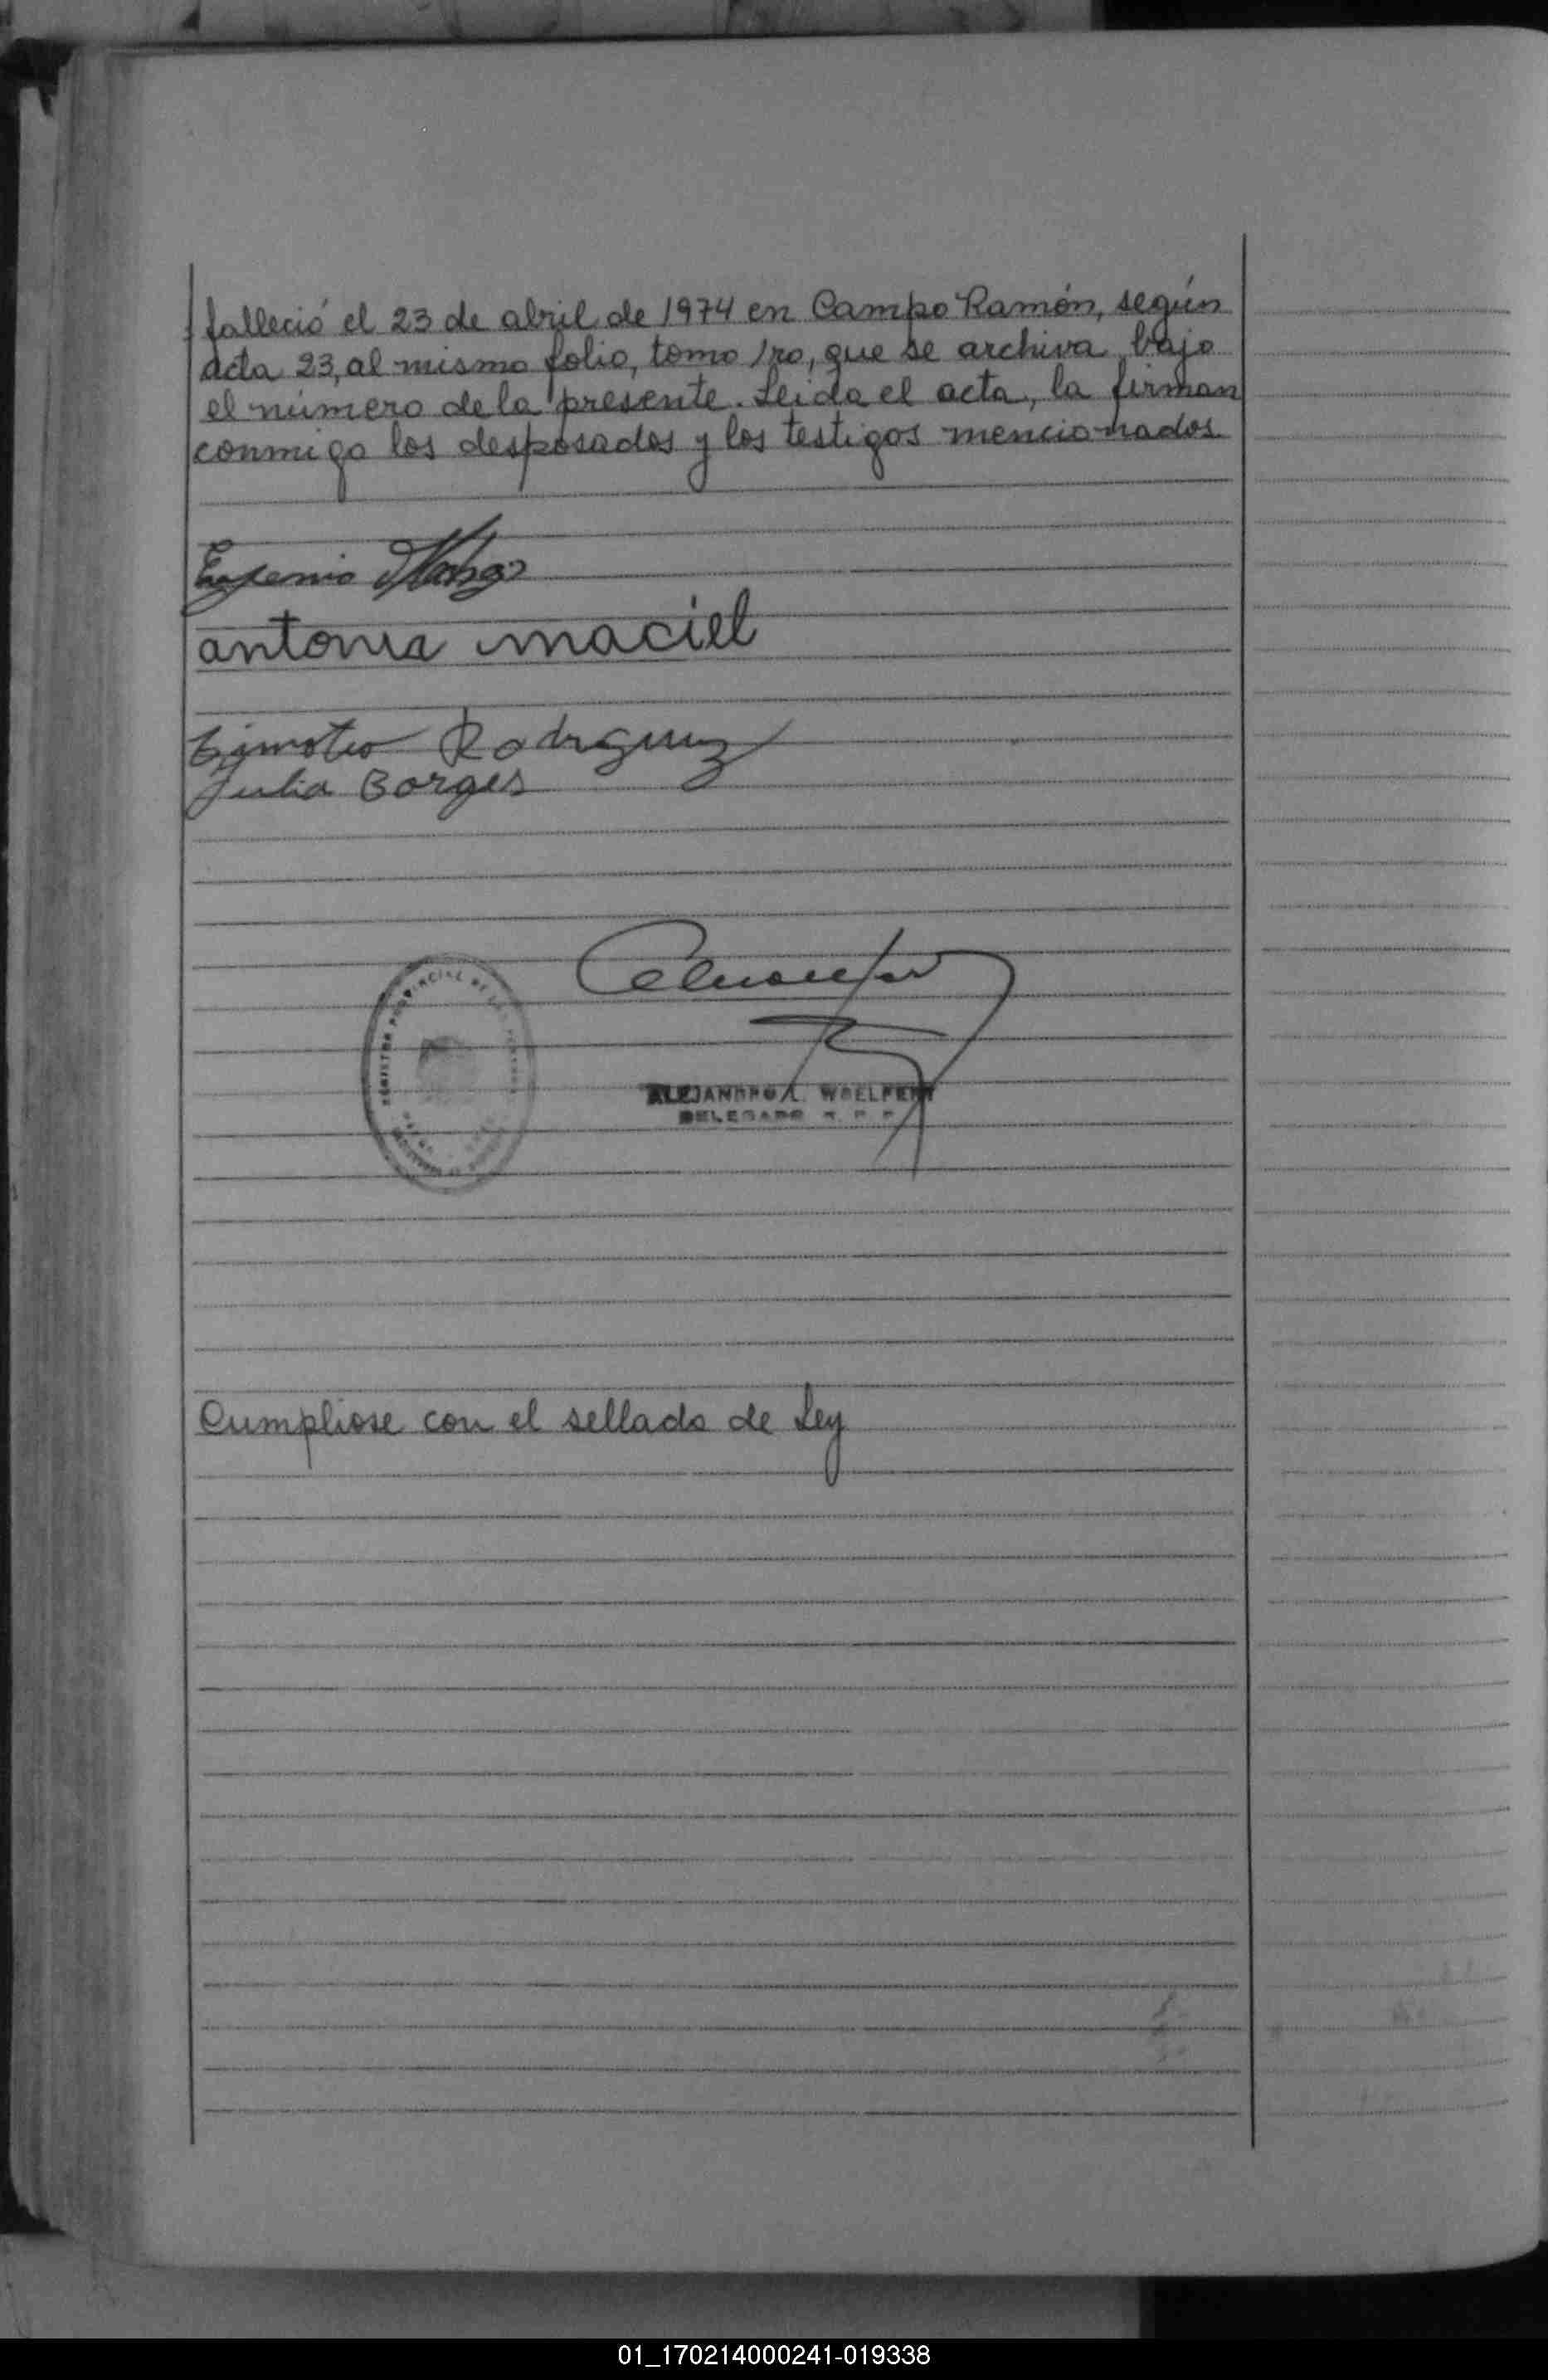 falleció el 23 de abril de 1974 en Campo Ramón, según
acta 23, al mismo folio, tomo 1ro, que se archiva bajo
el número de la presente. Leida el acta, la firman
conmigo los desposados y los testigos mencionados
Eugenio
antonia maciel
Timoteo Rodriguez
Julia Borges
REGISTRO PROVINCIAL DE LAS PERSONAS
ALEJANDRO A. WOELFERT
DELEGADO R. P. P.
Cumpliose con el sellado de Ley
01_170214000241-019338